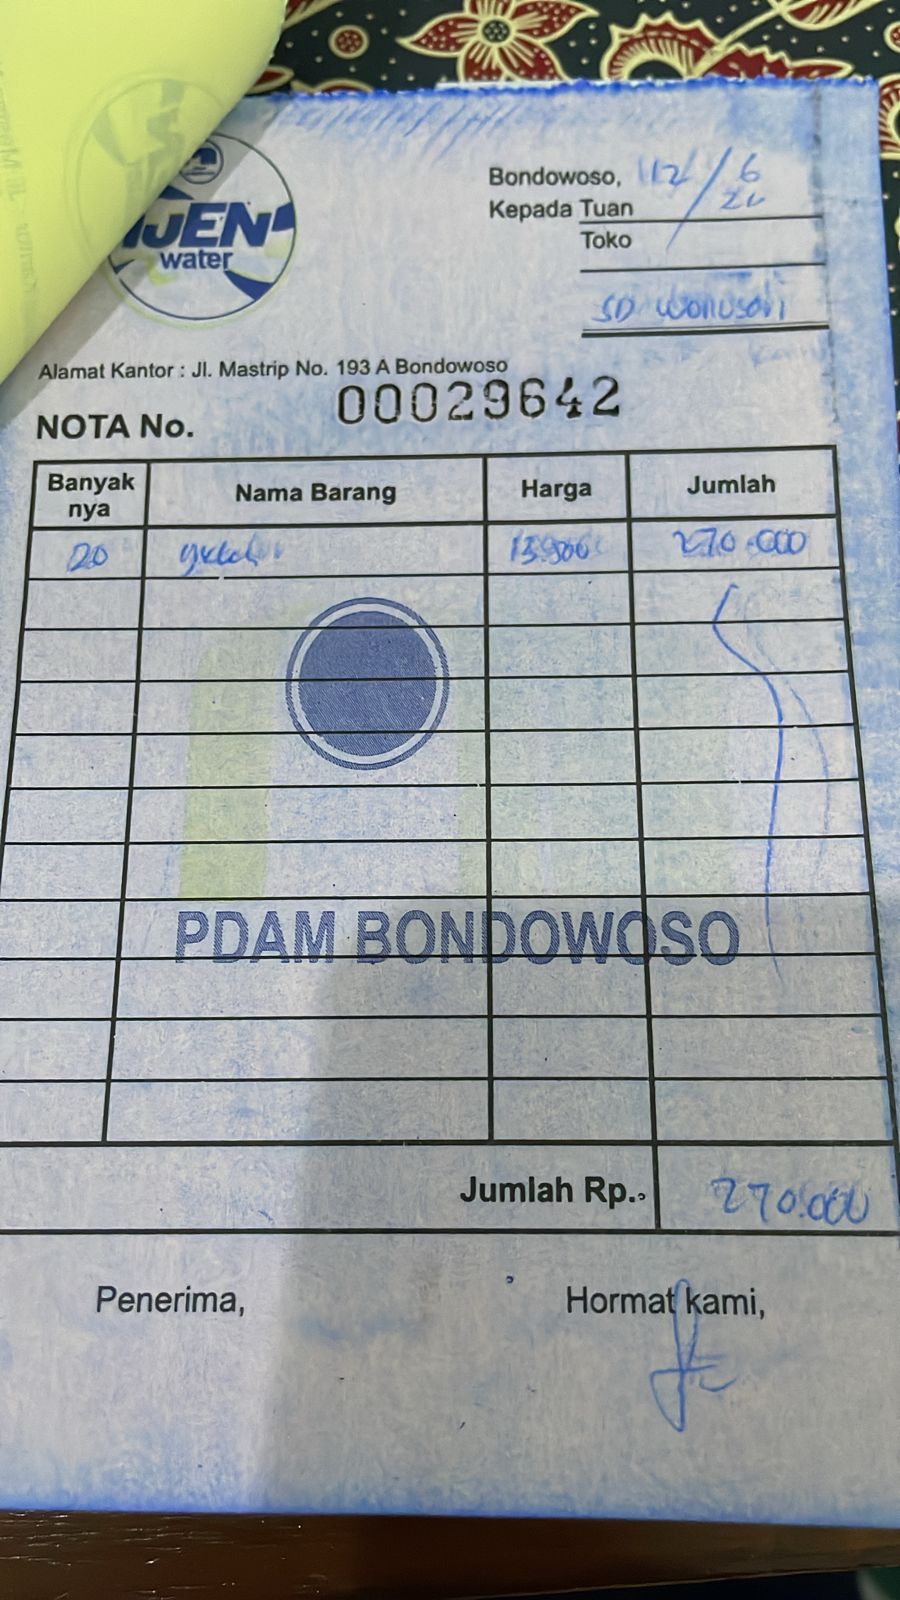 IJEN
water
Bondowoso, 12/6
Kepada Tuan
Toko
SD Wonosari
Alamat Kantor : Jl. Mastrip No. 193 A Bondowoso
NOTA No. 00029642
Banyak nya Nama Barang Harga Jumlah
20 13.500 270.000
PDAM BONDOWOSO
Jumlah Rp. 270.000
Penerima, Hormat kami,